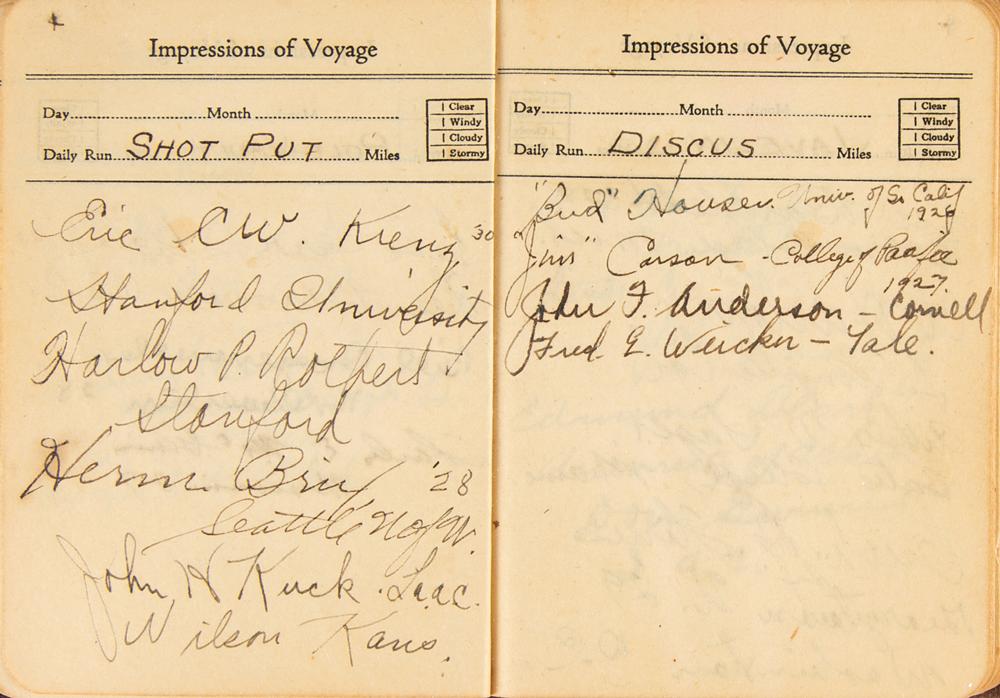 Impressions of Voyage
Day Month
Daily Run SHOT PUT Miles
Clear
Windy
Cloudy
Stormy
Eric C W. Krenz '30
Stanford University
Harlow P. Rothert
Stanford
Herm Brix '28
Seattle U of W.
John H Kuck L.a.a.c.
Wilson Kans.
Impressions of Voyage
Day Month
Daily Run DISCUS Miles
Clear
Windy
Cloudy
Stormy
"Bud" Houser. Univ. of So Calif
1926
"Jim" Corson - College of Pacific
1927.
John F. Anderson - Cornell
Fred. E. Weicker - Yale.